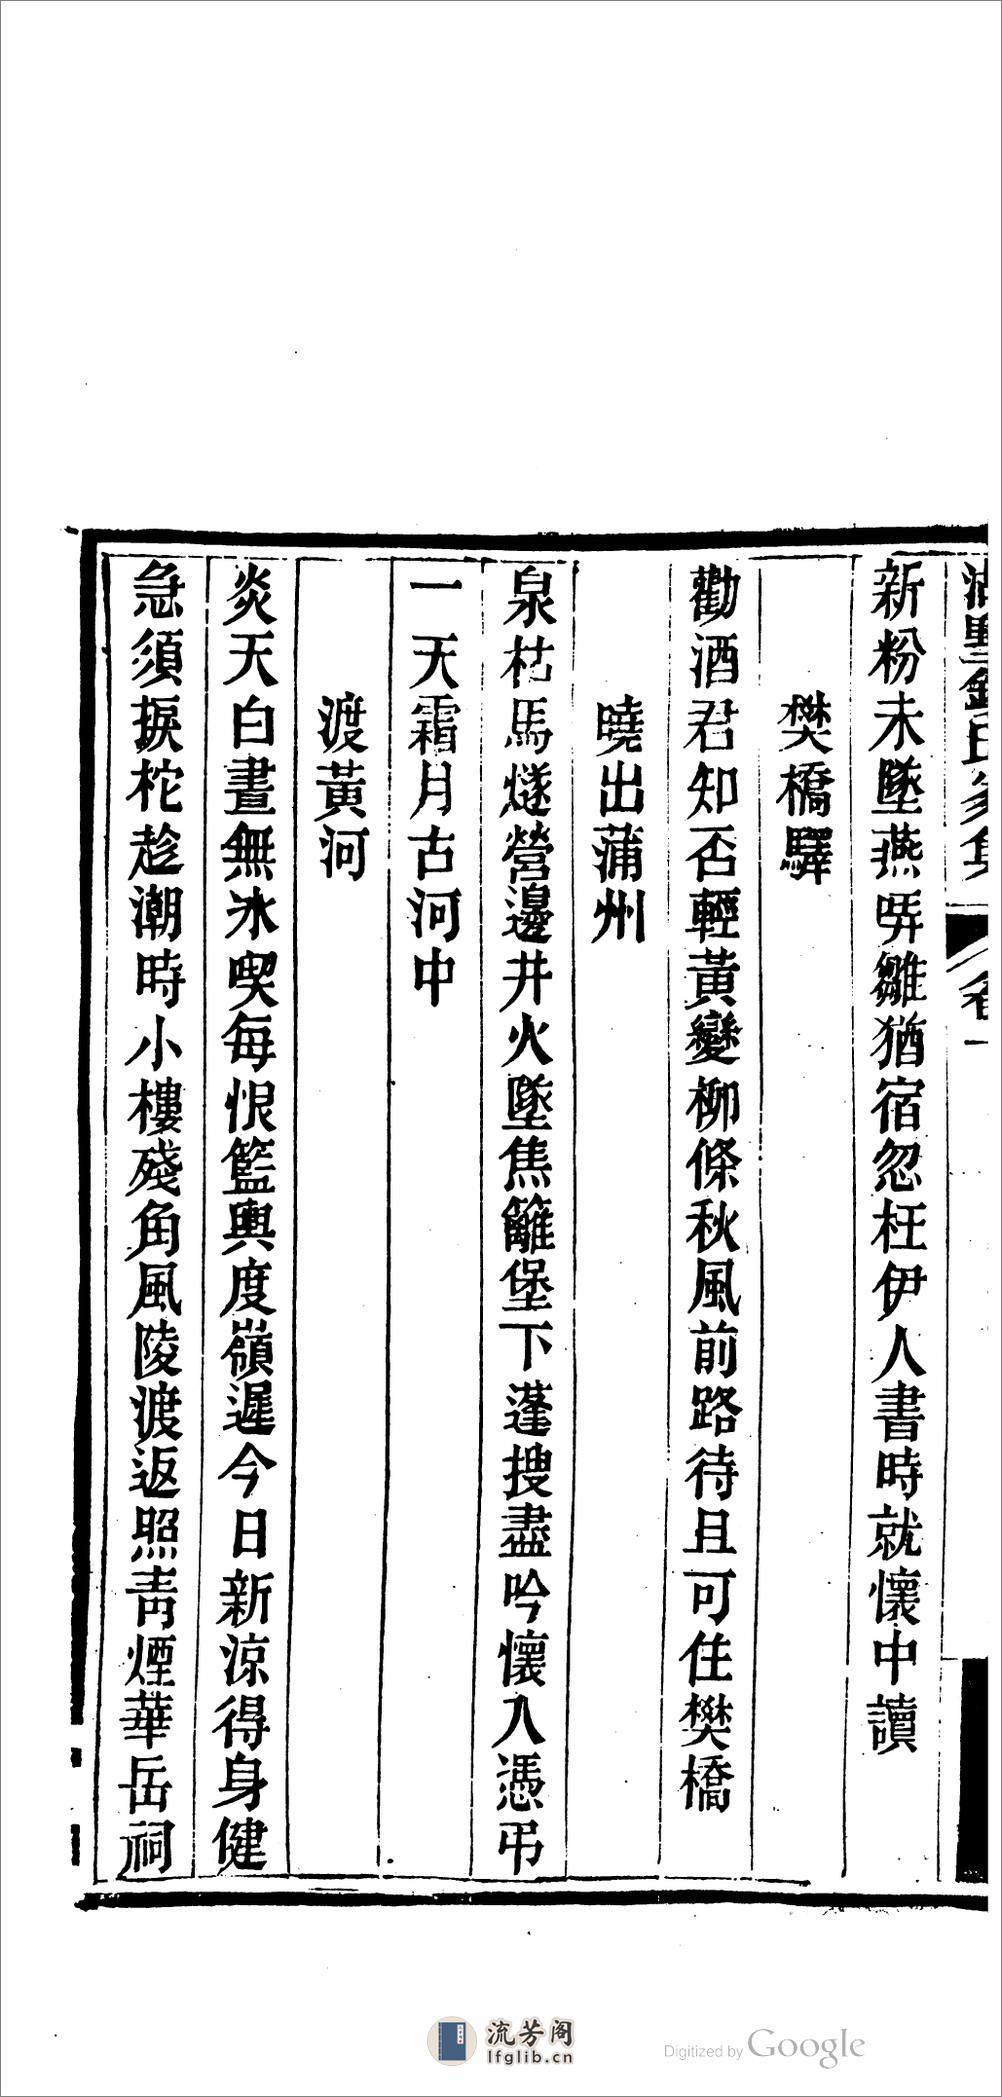 湖墅錢氏家集 卷一
新粉未墜燕哢雛猶宿忽枉伊人書時就懷中讀
樊橋驛
勸酒君知否輕黃變柳條秋風前路待且可住樊橋
曉出蒲州
泉枯馬燧營邊井火墜焦籬堡下蓬搜盡吟懷入憑弔
一天霜月古河中
渡黃河
炎天白晝無冰喫每恨籃輿度嶺遲今日新涼得身健
急須捩柁趁潮時小樓殘角風陵渡返照靑煙華岳祠
流芳阁
lfglib.cn
Digitized by Google